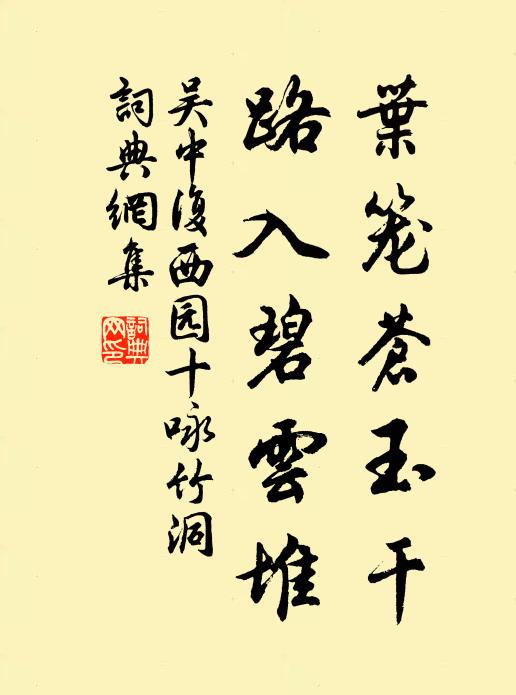 葉笼蒼玉干
路入碧雲堆
吴中復西园十咏竹洞
詞典網集
詞典
网印